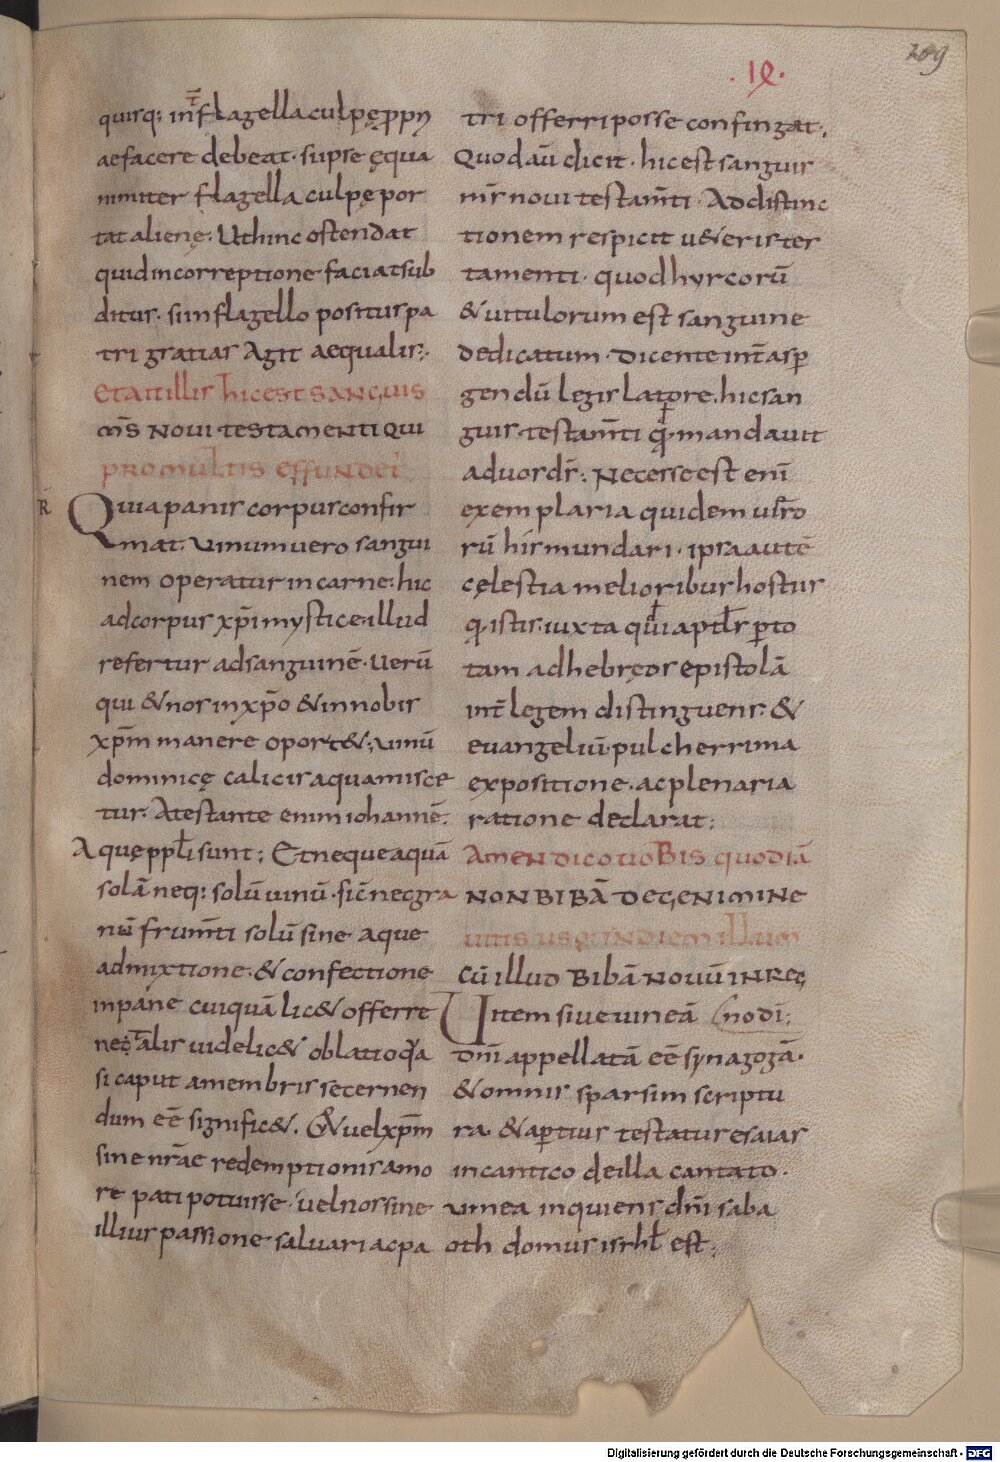 209
.IX.
quisq: int̄ flagella culpę ppriȩ
aefacere debeat· si ipse ęqua
nimiter flagella culpę por
tat alienę: Ut hinc ostendat
quid in correptione faciat sub
ditus· si in flagello positus pa
tri gratias Agit aequalis:·
Et ait illis hic est sanguis
m̄s novi testamenti qui
pro multis effundet̄
R̄ Quia panis corpus confir
mat. Vinum vero sangui
nem operatur in carne: hic
ad corpus xp̄i mystice· illud
refertur ad sanguinē· Verū
qui & nos in xp̄o & in nobis
xp̄m manere oport&; vinū
dominicę calicis aqua misce
tur· Atestante enim iohannē.
Aquę pp̄li sunt; Et neque aquā
solā neq: solū vinū· sic̄ nec gra
nū frum̄ti solū sine aque
admixtione· & confectione
in pane cuiquā lic& offerre
ne talis videlic& oblatio q̄a
si caput a membris secernen
dum eē signific&. Qđ vel xp̄m
sine nr̄ae redemptionis amo
re pati potuisse· vel nos sine
illius passione salvari ac pa
tri offerri posse confingat·
Quod aū dicit· hic est sanguis
m̄s novi testam̄ti· Ad distinc
tionem respicit u&eris tes
tamenti· quod hyrcorū
& vitulorum est sanguine
dedicatum· dicente int̄ asp
gendū legis latore. hic san
guis testam̄ti q̄ mandavit
ad vos d̄s: Necesse est enī
exemplaria quidem vēro
rū his mundari· ipsa autē
cęlestia melioribus hostiis
q̄ istis· iuxta qđ apt̄ls p to
tam ad hebręos epistolā
int̄ legem distinguens· &
evangeliū· pulcherrima
expositione· ac plenaria
ratione declarat;
Amen dico vobis quod iā
non bibā de genimine
vitis usq: in diem illum
cū illud bibā novū in reg
Vitem sive vineā no dī;
dn̄i appellatā eē synagogā·
& omnis sparsim scriptu
ra. & aptius testatur esaias
in cantico de illa cantato·
vinea inquiens dn̄i saba
oth domus isrhł est;
Digitalisierung gefördert durch die Deutsche Forschungsgemeinschaft - DFG